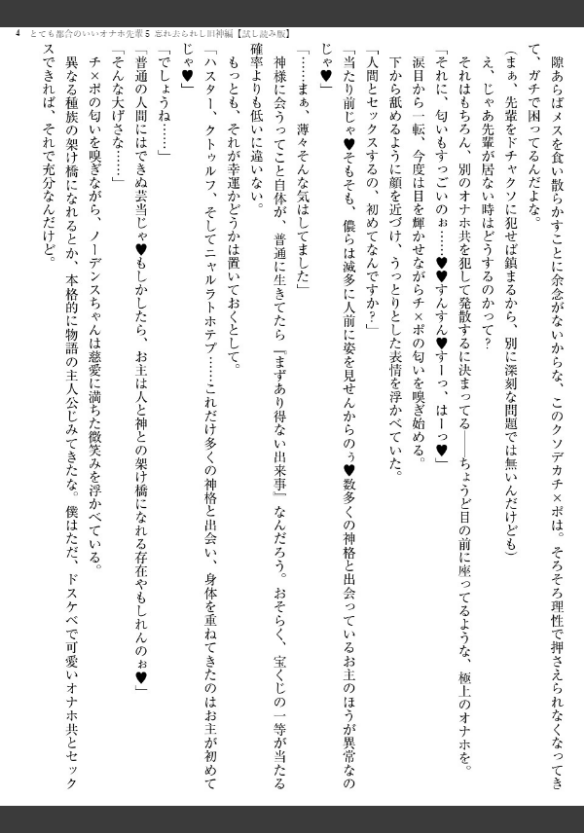 4 とても都合のいいオナホ先輩5 忘れ去られし旧神編【試し読み版】
隙あらばメスを食い散らかすことに余念がないからな、このクソデカチ×ポは。そろそろ理性で押さえられなくなってき
て、ガチで困ってるんだよな。
(まぁ、先輩をドチャクソに犯せば鎮まるから、別に深刻な問題では無いんだけども)
え、じゃあ先輩が居ない時はどうするのかって?
それはもちろん、別のオナホ共を犯して発散するに決まってる――ちょうど目の前に座ってるような、極上のオナホを。
「それに、匂いもすっごいのぉ……♥♥すんすん♥すーっ、はーっ♥」
涙目から一転、今度は目を輝かせながらチ×ポの匂いを嗅ぎ始める。
下から舐めるように顔を近づけ、うっとりとした表情を浮かべていた。
「人間とセックスするの、初めてなんですか?」
「当たり前じゃ♥そもそも、儂らは滅多に人前に姿を見せんからのぅ♥数多くの神格と出会っているお主のほうが異常なの
じゃ♥」
「……まぁ、薄々そんな気はしてました」
神様に会うってこと自体が、普通に生きてたら『まずあり得ない出来事』なんだろう。おそらく、宝くじの一等が当たる
確率よりも低いに違いない。
もっとも、それが幸運かどうかは置いておくとして。
「ハスター、クトゥルフ、そしてニャルラトホテプ……これだけ多くの神格と出会い、身体を重ねてきたのはお主が初めて
じゃ♥」
「でしょうね……」
「普通の人間にはできぬ芸当じゃ♥もしかしたら、お主は人と神との架け橋になれる存在やもしれんのぉ♥」
「そんな大げさな……」
チ×ポの匂いを嗅ぎながら、ノーデンスちゃんは慈愛に満ちた微笑みを浮かべている。
異なる種族の架け橋になれるとか、本格的に物語の主人公じみてきたな。僕はただ、ドスケベで可愛いオナホ共とセック
スできれば、それで充分なんだけど。